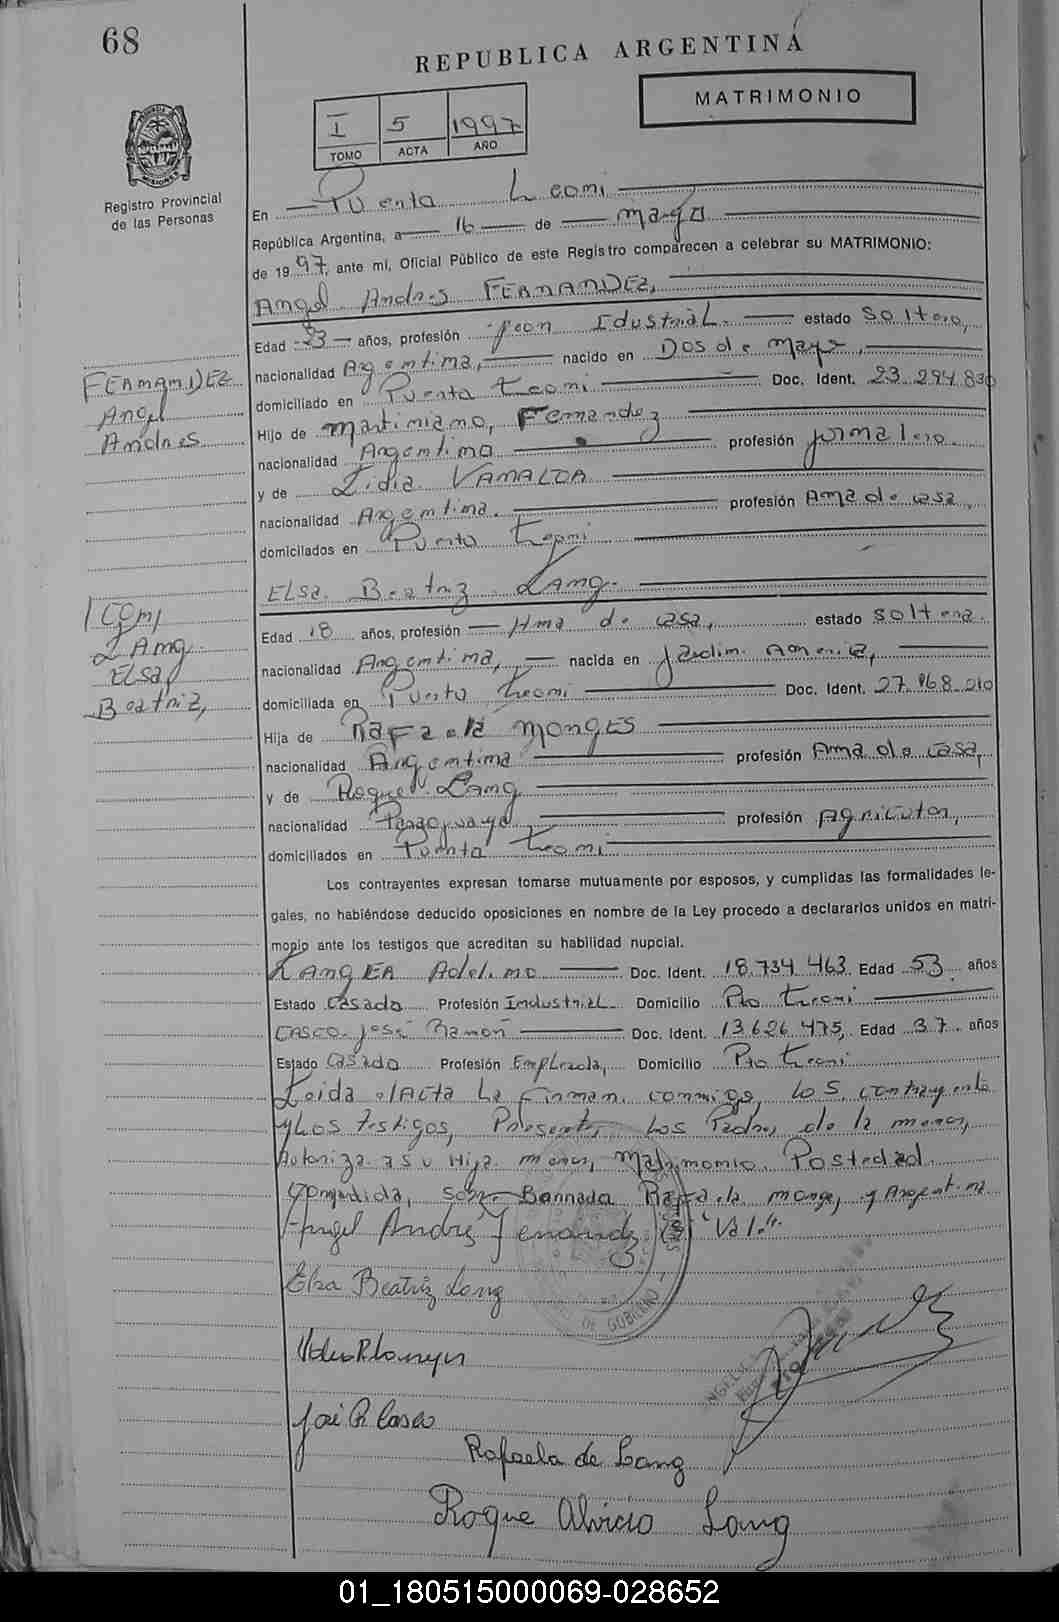 68
REPUBLICA ARGENTINA
MATRIMONIO
I 5 1997
TOMO ACTA AÑO
PROVINCIA
MISIONES
Registro Provincial
de las Personas
En Puerto Leoni
República Argentina, a 16 de marzo
de 1997, ante mi, Oficial Público de este Registro comparecen a celebrar su MATRIMONIO:
Angel Andres FERNANDEZ,
Edad 23 años, profesión peon Idustrial. estado Soltero,
nacionalidad Argentina, nacido en Dos de mayo,
domiciliado en Puerto Leoni Doc. Ident. 23.294.830
Hijo de Martiniano, Fernandez
nacionalidad Argentino profesión jornalero.
y de Lidia
nacionalidad Argentina. profesión Ama de casa,
domicilados en Puerto Leoni
FERNANDEZ
Angel
Andres
Elsa Beatriz Lang.
Edad 18 años, profesión Ama de casa, estado soltera.
nacionalidad Argentina, nacida en Jardin America,
domiciliada en Puerto Leoni Doc. Ident. 27.468.210
Hija de Rafaela Monges
nacionalidad Argentina profesión Ama de casa,
y de Roque Lang
nacionalidad Paraguayo profesión Agricutor,
domiciliados en Puerto Leoni
Con
Lang.
Elsa
Beatriz,
Los contrayentes expresan tomarse mutuamente por esposos, y cumplidas las formalidades le-
gales, no habiéndose deducido oposiciones en nombre de la Ley procedo a declararlos unidos en matri-
monio ante los testigos que acreditan su habilidad nupcial.
Adelino Doc. Ident. 18.734.463 Edad 53 años
Estado Casado Profesión Industrial Domicilio Pto Leoni
CASCO José Ramon Doc. Ident. 13.626.475, Edad 37. años
Estado Casado Profesión Empleado, Domicilio Pto Leoni
Leida el Acta La Firman conmigo, Los contrayente
y Los testigos, Presente, Los Padres de la menor,
Autoriza a su Hija menor, Matrimonio.
Rafaela monge, y Argentina
Angel Andrés Fernandez "Vale".
Elsa Beatriz Lang
José R Casco
DE GOBIERNO
Rafaela de Lang
Roque Alvicio Lang
01_180515000069-028652